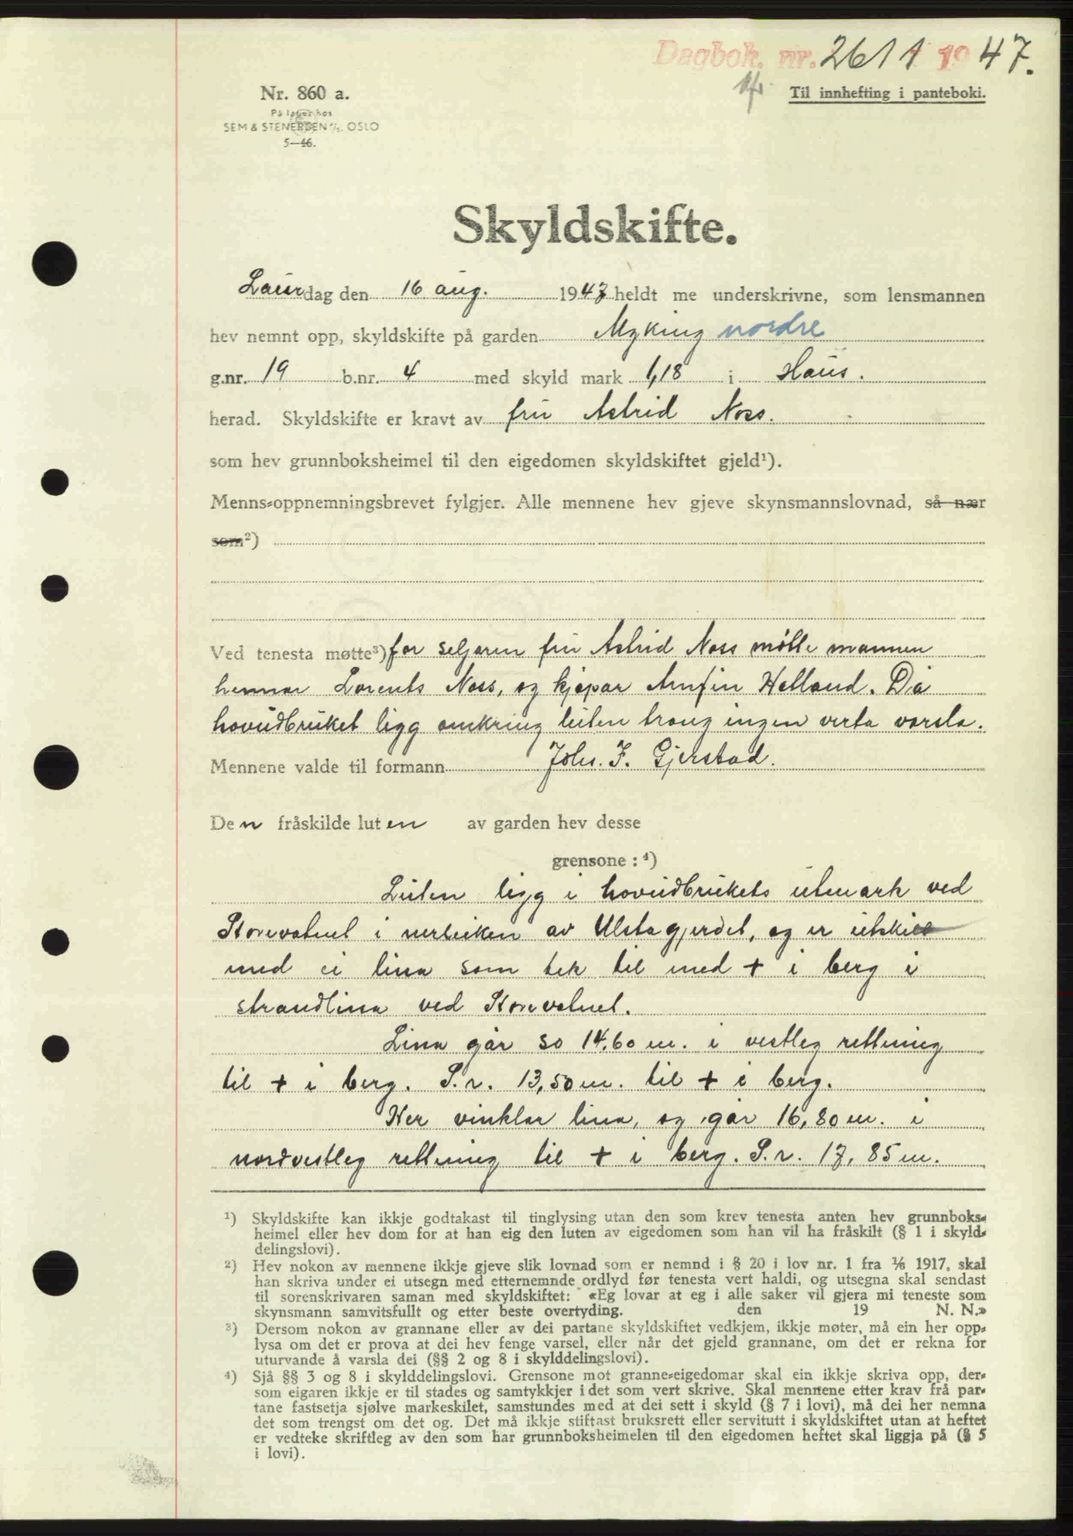 Dagbok. nr. 2611 1947.
Nr. 860 a.
Til innhefting i panteboki.
På lager hos
SEM & STENERSEN A/S. OSLO
5—46.
Skyldskifte.
Laurdag den 16 aug. 1947 heldt me underskrivne, som lensmannen
hev nemnt opp, skyldskifte på garden Myking nordre
g.nr. 19 b.nr. 4 med skyld mark 1,18 i Haus.
herad. Skyldskifte er kravt av fru Astrid Noss.
som hev grunnboksheimel til den eigedomen skyldskiftet gjeld¹).
Menns-oppnemningsbrevet fylgjer. Alle mennene hev gjeve skynsmannslovnad, så nær
som²)
Ved tenesta møtte³) for seljaren fru Astrid Noss møtte mannen
hennar Lorents Noss, og kjøpar Arnfin Helland. Då
hovudbruket ligg omkring luten trong ingen verta varsla.
Mennene valde til formann Johs. J. Gjerstad.
Den fråskilde luten av garden hev desse
grensone : ⁴)
Luten ligg i hovudbrukets utmark ved
Storevatnet i av Ulstagjerdet, og er utskilt
med ei lina som tek til med + i berg i
strandlina ved Storevatnet.
Lina går so 14,60 m. i vestleg rettning
til + i berg. S.r. 13,50 m. til + i berg.
Her vinklar lina, og går 16,80 m. i
nordvestleg rettning til + i berg. S.r. 17,85 m.
¹) Skyldskifte kan ikkje godtakast til tinglysing utan den som krev tenesta anten hev grunnboks-
heimel eller hev dom for at han eig den luten av eigedomen som han vil ha fråskilt (§ 1 i skyld-
delingslovi).
²) Hev nokon av mennene ikkje gjeve slik lovnad som er nemnd i § 20 i lov nr. 1 fra 1/6 1917, skal
han skriva under ei utsegn med etternemnde ordlyd før tenesta vert haldi, og utsegna skal sendast
til sorenskrivaren saman med skyldskiftet: «Eg lovar at eg i alle saker vil gjera mi teneste som
skynsmann samvitsfullt og etter beste overtyding. den 19 N. N.»
³) Dersom nokon av grannane eller av dei partane skyldskiftet vedkjem, ikkje møter, må ein her opp-
lysa om det er prova at dei hev fenge varsel, eller når det gjeld grannane, om det er rekna for
uturvande å varsla dei (§§ 2 og 8 i skylddelingslovi).
⁴) Sjå §§ 3 og 8 i skylddelingslovi. Grensone mot granne-eigedomar skal ein ikkje skriva opp, der-
som eigaren ikkje er til stades og samtykkjer i det som vert skrive. Skal mennene etter krav frå par-
tane fastsetja sjølve markeskilet, samstundes med at dei sett i skyld (§ 7 i lovi), må dei her nemna
det som trengst om det og. Det må ikkje stiftast bruksrett eller servitutt i skyldskiftet utan at heftet
er vedteke skriftleg av den som har grunnboksheimelen til den eigedomen heftet skal liggja på (§ 5
i lovi).